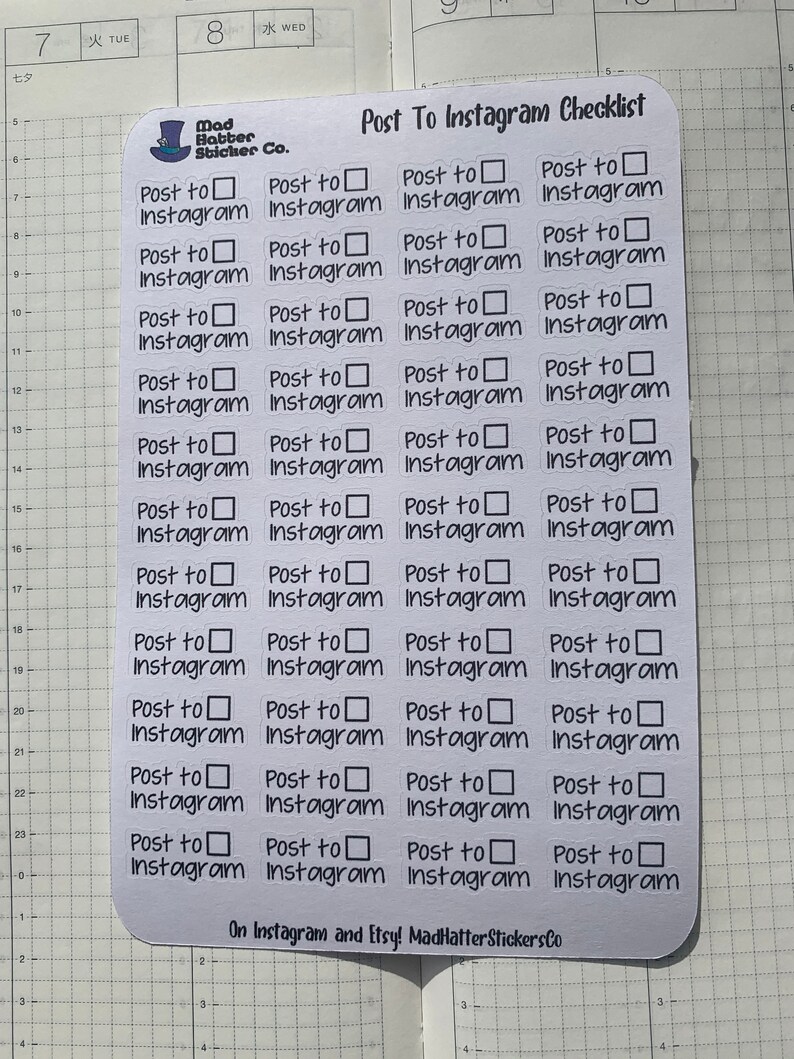 7 火 TUE
8 水 WED
9
七夕
5
5
5
6
7
8
9
10
11
12
13
14
15
16
17
18
19
20
21
22
23
0
1
2
3
4
Mad
Hatter
Sticker Co.
Post To Instagram Checklist
Post to Post to Post to Post to
Instagram Instagram Instagram Instagram
Post to Post to Post to Post to
Instagram Instagram Instagram Instagram
Post to Post to Post to Post to
Instagram Instagram Instagram Instagram
Post to Post to Post to Post to
Instagram Instagram Instagram Instagram
Post to Post to Post to Post to
Instagram Instagram Instagram Instagram
Post to Post to Post to Post to
Instagram Instagram Instagram Instagram
Post to Post to Post to Post to
Instagram Instagram Instagram Instagram
Post to Post to Post to Post to
Instagram Instagram Instagram Instagram
Post to Post to Post to Post to
Instagram Instagram Instagram Instagram
Post to Post to Post to Post to
Instagram Instagram Instagram Instagram
Post to Post to Post to Post to
Instagram Instagram Instagram Instagram
On Instagram and Etsy! MadHatterStickersCo
2
3
4
2
3
4
3
4